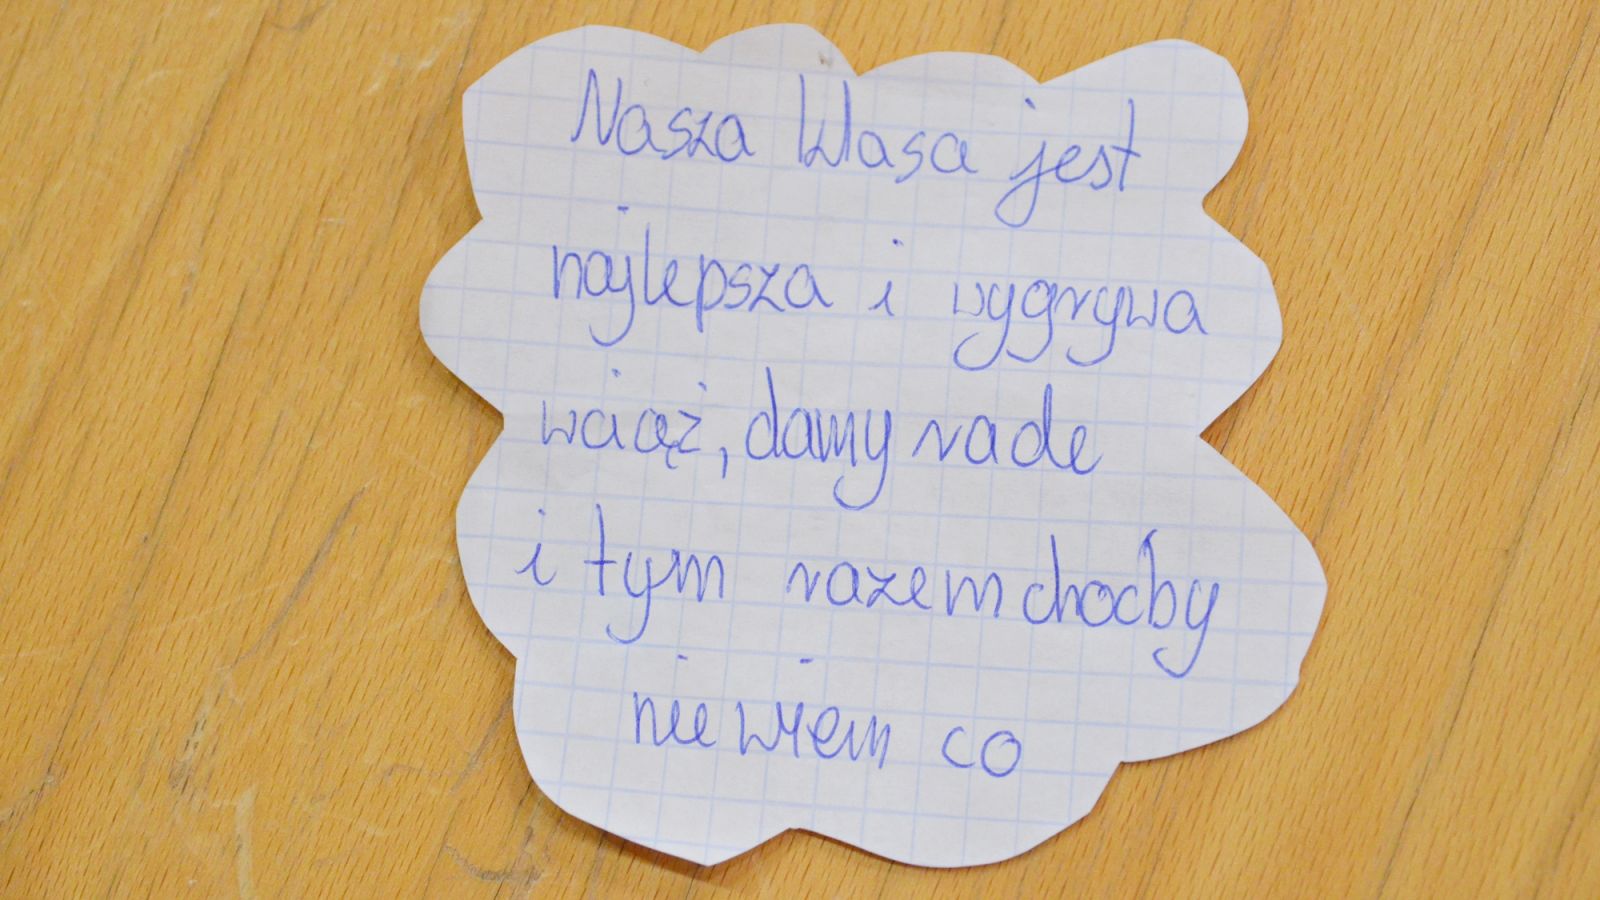 Nasza klasa jest
najlepsza i wygrywa
wciąż, damy rade
i tym razem choćby
nie wiem co